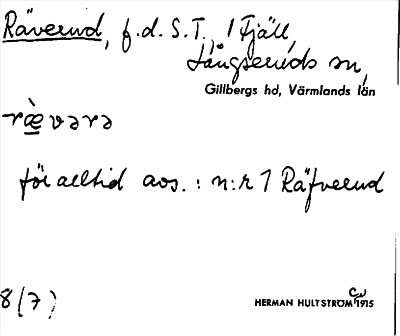 Räverud, f.d. S.T., 1 Fjäll,
Långseruds sn,
Gillbergs hd, Värmlands län
ræ̀vərə
för alltid avs. : n:r 1 Räfverud
8(7)
HERMAN HULTSTRÖM 1915